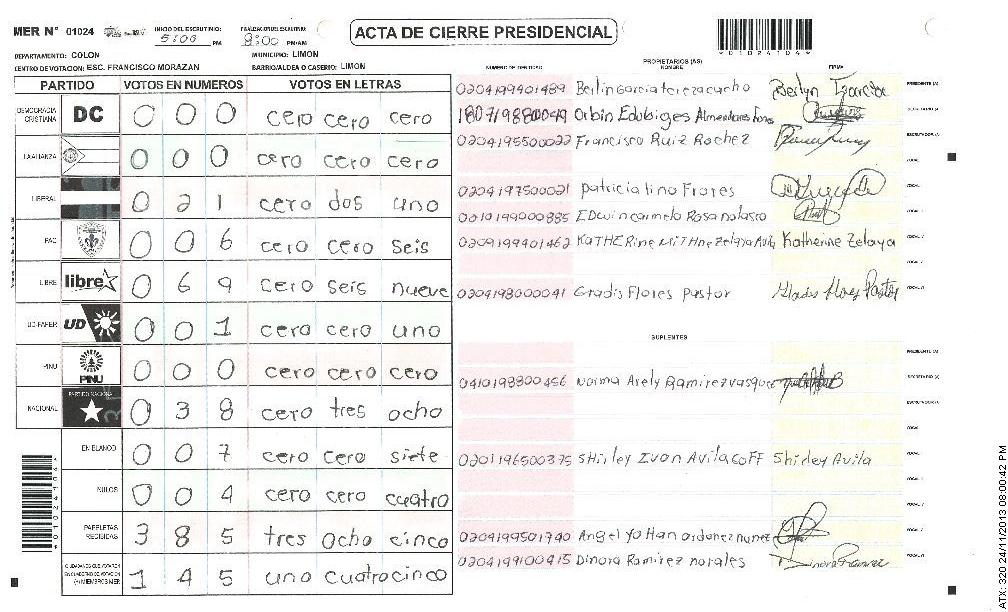 MER N° 01024 INICIO DEL ESCRUTINIO: 5:00 PM 8:00 PM/AM
ACTA DE CIERRE PRESIDENCIAL
DEPARTAMENTO: COLON MUNICIPIO: LIMON
CENTRO DE VOTACION: ESC. FRANCISCO MORAZAN BARRIO/ALDEA O CASERIO: LIMON
PARTIDO VOTOS EN NUMEROS VOTOS EN LETRAS
DEMOCRACIA CRISTIANA DC 0 0 0 cero cero cero
LA ALIANZA 0 0 0 cero cero cero
LIBERAL 0 2 1 cero dos uno
PAC 0 0 6 cero cero seis
LIBRE libre 0 6 9 cero seis nueve
UD-FAPER UD 0 0 1 cero cero uno
PINU PINU 0 0 0 cero cero cero
NACIONAL PARTIDO NACIONAL 0 3 8 cero tres ocho
EN BLANCO 0 0 7 cero cero siete
NULOS 0 0 4 cero cero cuatro
PAPELETAS RECIBIDAS 3 8 5 tres ocho cinco
CIUDADANOS QUE VOTARON EN CUADERNO DE VOTACION (+) MIEMBROS MER 1 4 5 uno cuatro cinco
PROPIETARIOS (AS)
NUMERO DE IDENTIDAD NOMBRE FIRMA
0204199401489 PRESIDENTE (A)
Orbin Edubiges Almendares SECRETARIO (A)
0204195500022 Francisco Ruiz Rochez ESCRUTADOR (A)
VOCAL I
0204197500021 patricia lino Frores
0010199000885 EDwin carmelo Rosa nolasco
0209199401462 KaTHERine MiTHne Zelaya Avila Katherine Zelaya
0204198000041 Gradis Flores pastor Gladis Flores Pastor
SUPLENTES
PRESIDENTE (A)
0410198800456 Norma Arely Ramirez vasquez SECRETARIO (A)
ESCRUTADOR (A)
0201196500375 SHirley Ivon Avila coFF Shirley Avila
0204199501740 Angel yoHan ordonez nunez
0204199100415 Dinora Ramirez morales Dinora Ramirez
ATX: 320 24/11/2013 08:00:42 PM